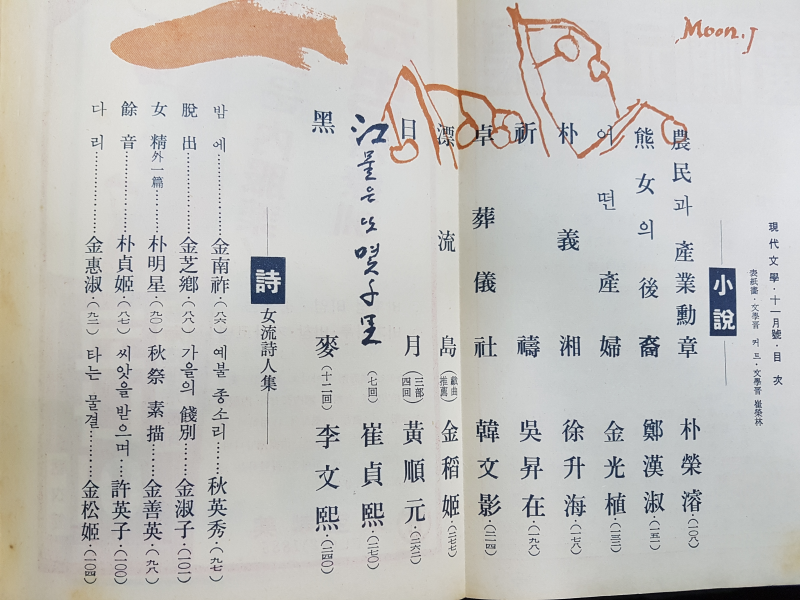 Moon.J
現代文學·十一月號·目次
表紙畵·文學晋 커트·文學晋 崔榮林
小說
農民과 産業勳章 朴榮濬·(一〇八)
熊女의 後裔 鄭漢淑·(一五一)
어떤 産婦 金光植·(一三一)
朴義湘 徐升海·(一七八)
祈禱 吳昇在·(一九八)
卓葬儀社 韓文影·(二一四)
漂流島 (戱曲推薦) 金稻姬·(二七七)
日月 (三部四回) 黃順元·(二六二)
江물은 또 몇 千里 (七回) 崔貞熙·(二七〇)
黑麥 (十二回) 李文熙·(二四〇)
詩
女流詩人集
밤에……金南祚·(八六) 예불 종소리……秋英秀·(九七)
脫出……金芝鄕·(八八) 가을의 餞別……金淑子·(一〇一)
女精外一篇……朴明星·(九〇) 秋祭 素描……金善英·(九八)
餘音……朴貞姬·(八七) 씨앗을받으며……許英子·(一〇〇)
다리……金惠淑·(九二) 타는 물결……金松姬·(一〇四)